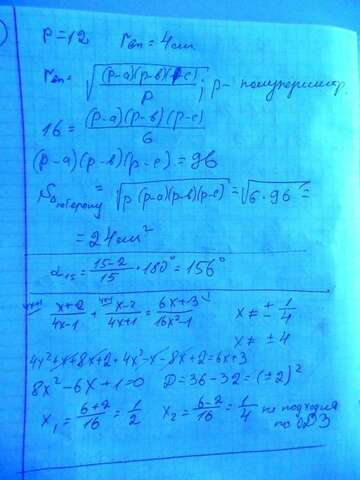 P=12 rвп=4см
rвп= √((p-a)(p-в)(p-c)/p) ; p- полупериметр.
16= (p-a)(p-в)(p-c)/6
(p-a)(p-в)(p-c)=96
S по Герону = √(p(p-a)(p-в)(p-c)) = √(6·96) =
=24см²
α15= (15-2)/15 ·180°=156°
(x+2)/(4x-1) + (x-2)/(4x+1) = (6x+3)/(16x²-1) x≠±1/4
x≠±4
4x²+x+8x+2+4x²-x-8x+2=6x+3
8x²-6x+1=0 D=36-32=(±2)²
x₁=(6+2)/16=1/2 x₂=(6-2)/16=1/4 не подходит
по ОДЗ